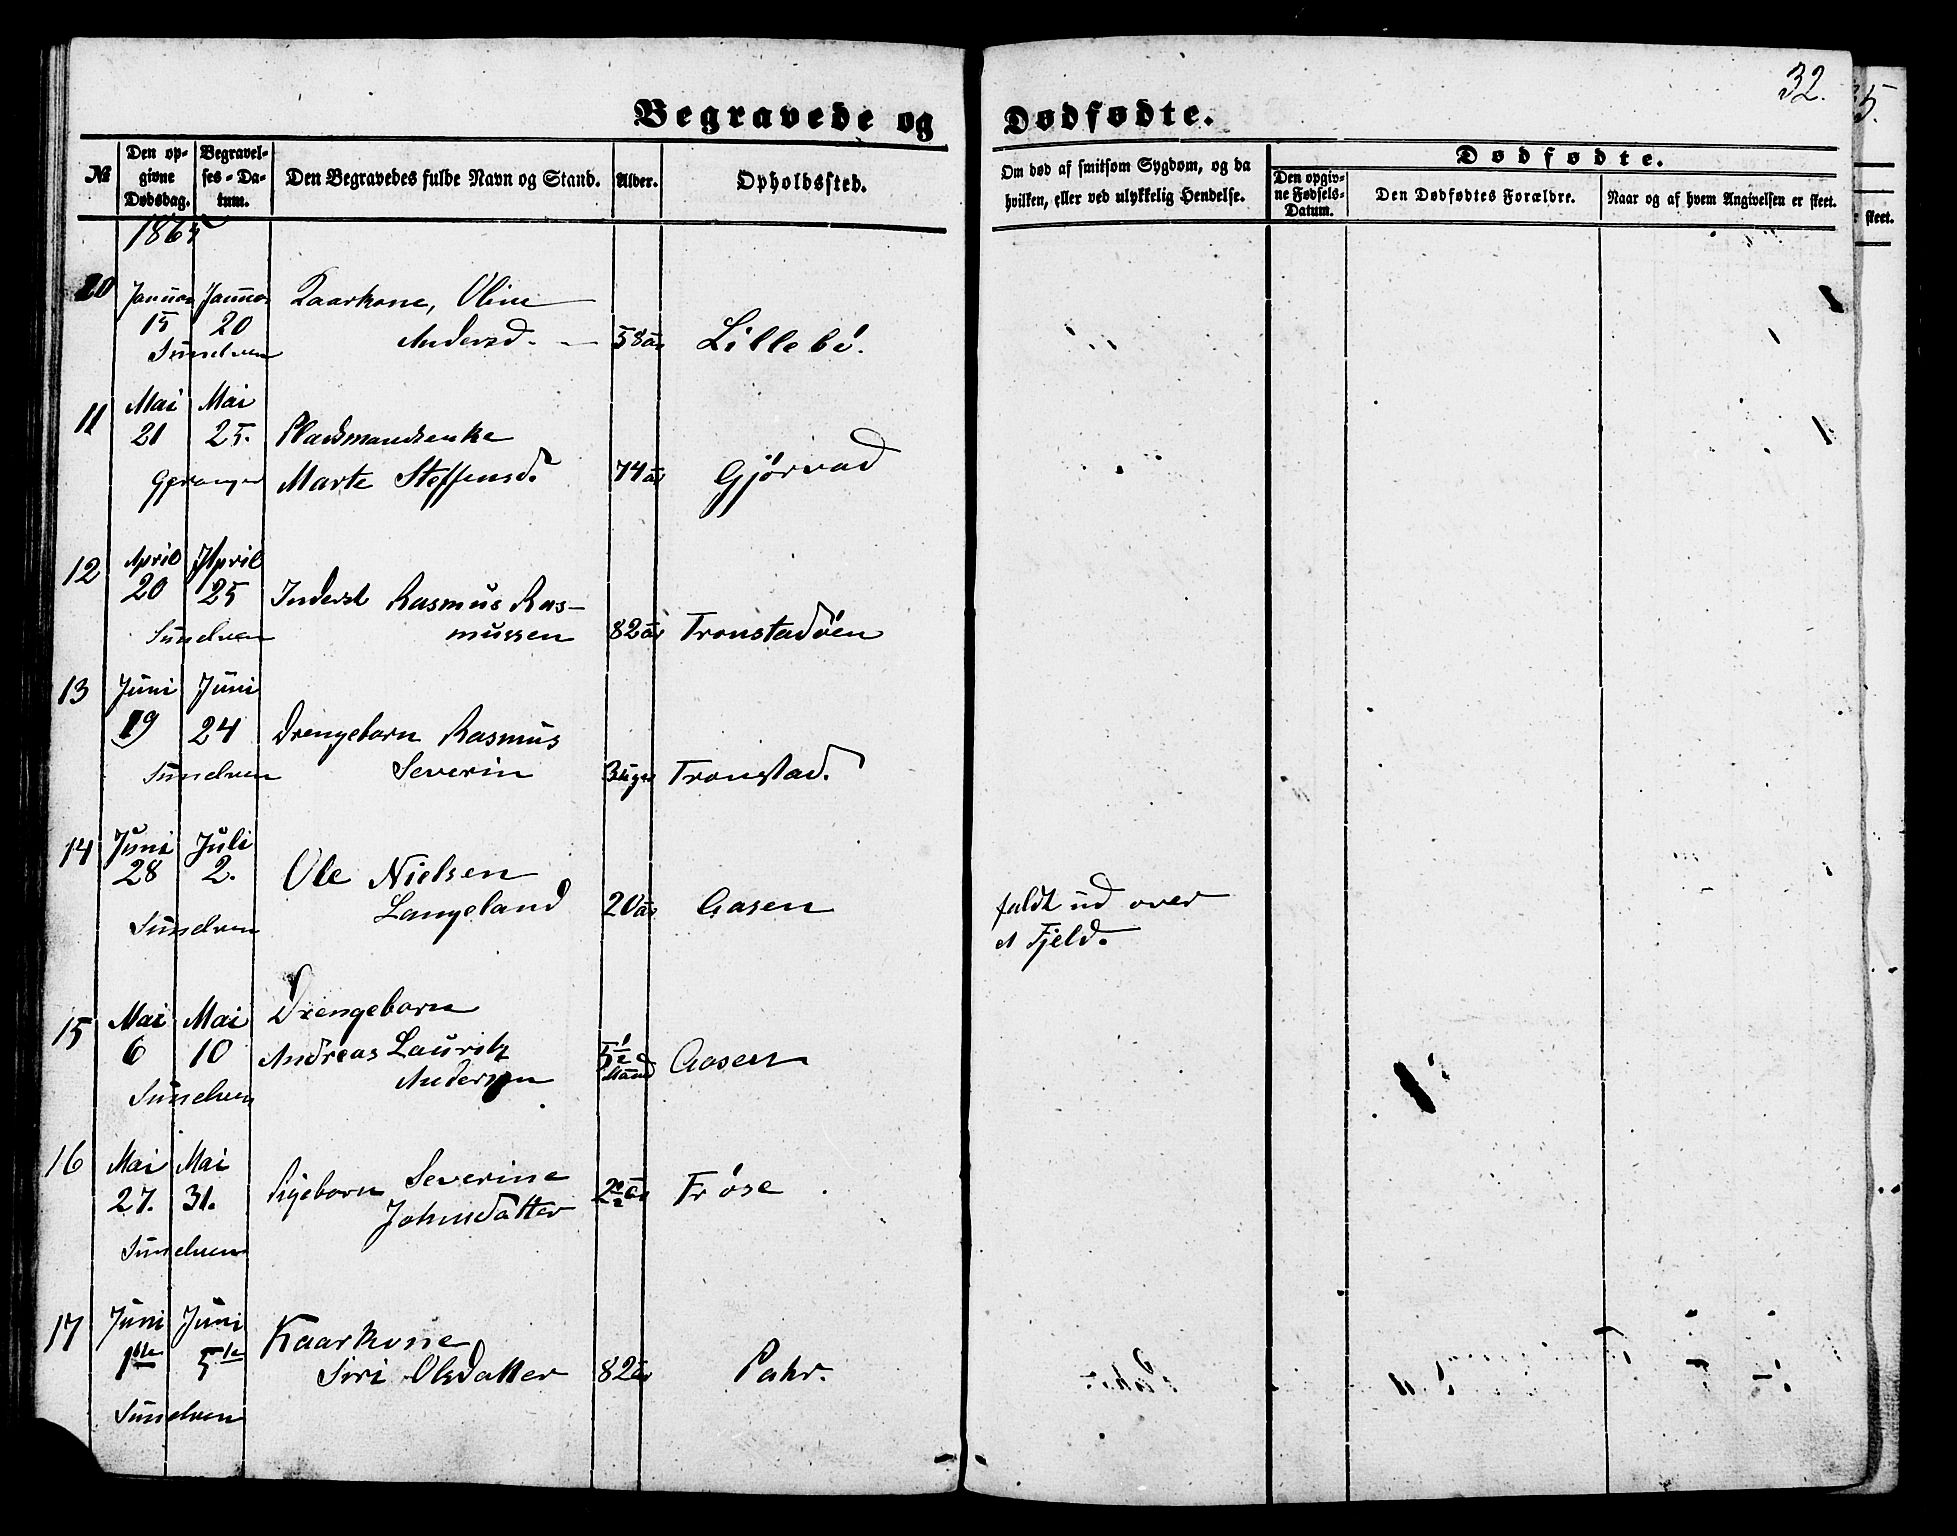 32.
5.
Begravede og Dødfødte.
№
Den opgivne Dødsdag.
Begravelses-Datum.
Den Begravedes fulde Navn og Stand.
Alder.
Opholdssted.
Om død af smitsom Sygdom, og da hvilken, eller ved ulykkelig Hendelse.
Dødfødte.
Den opgivne Fødsels-Datum.
Den Dødfødtes Forældre.
Naar og af hvem Angivelsen er skeet.
skeet.
10 Januar Januar Kaarkone, Oline
15 20 Andersd. 58 aar Lillebö.
Sunelven
11 Mai Mai
21 25. Pladsmandsenke
Marte Steffensd. 74 aar Gjörvad
12 April April
20 25 Inderst Rasmus Ras-
Sunelven mussen 82 aar Tronstadöen
13 Juni Juni
19 24 Drengebarn Rasmus
Sunelven Severin 3 uger Tronstad.
14 Juni Juli
28 2. Ole Nielsen
Langeland 20 aar Aasen faldt ud over
Sunelven et Fjeld.
15 Mai Mai Drengebarn
6 10 Andreas Lauritz
Andersen 5 1/2 Maaned Aasen
Sunelven
16 Mai Mai
27. 31. Pigebarn Severine
Johnsdatter Fröse
Sunelven
17 Juni Juni Kaarkone
1ste 5te Siri Olsdatter 82 aar Pahr.
Sunelven